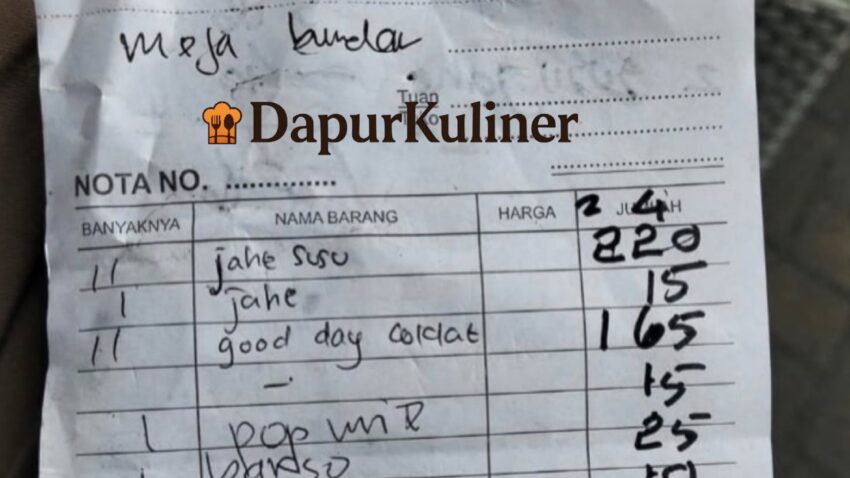 meja bundar
Tuan
DapurKuliner
NOTA NO.
BANYAKNYA NAMA BARANG HARGA JUMLAH
2 4
11 jahe susu 220
1 jahe 15
11 good day coklat 165
- 15
1 pop mie 25
1 bakso